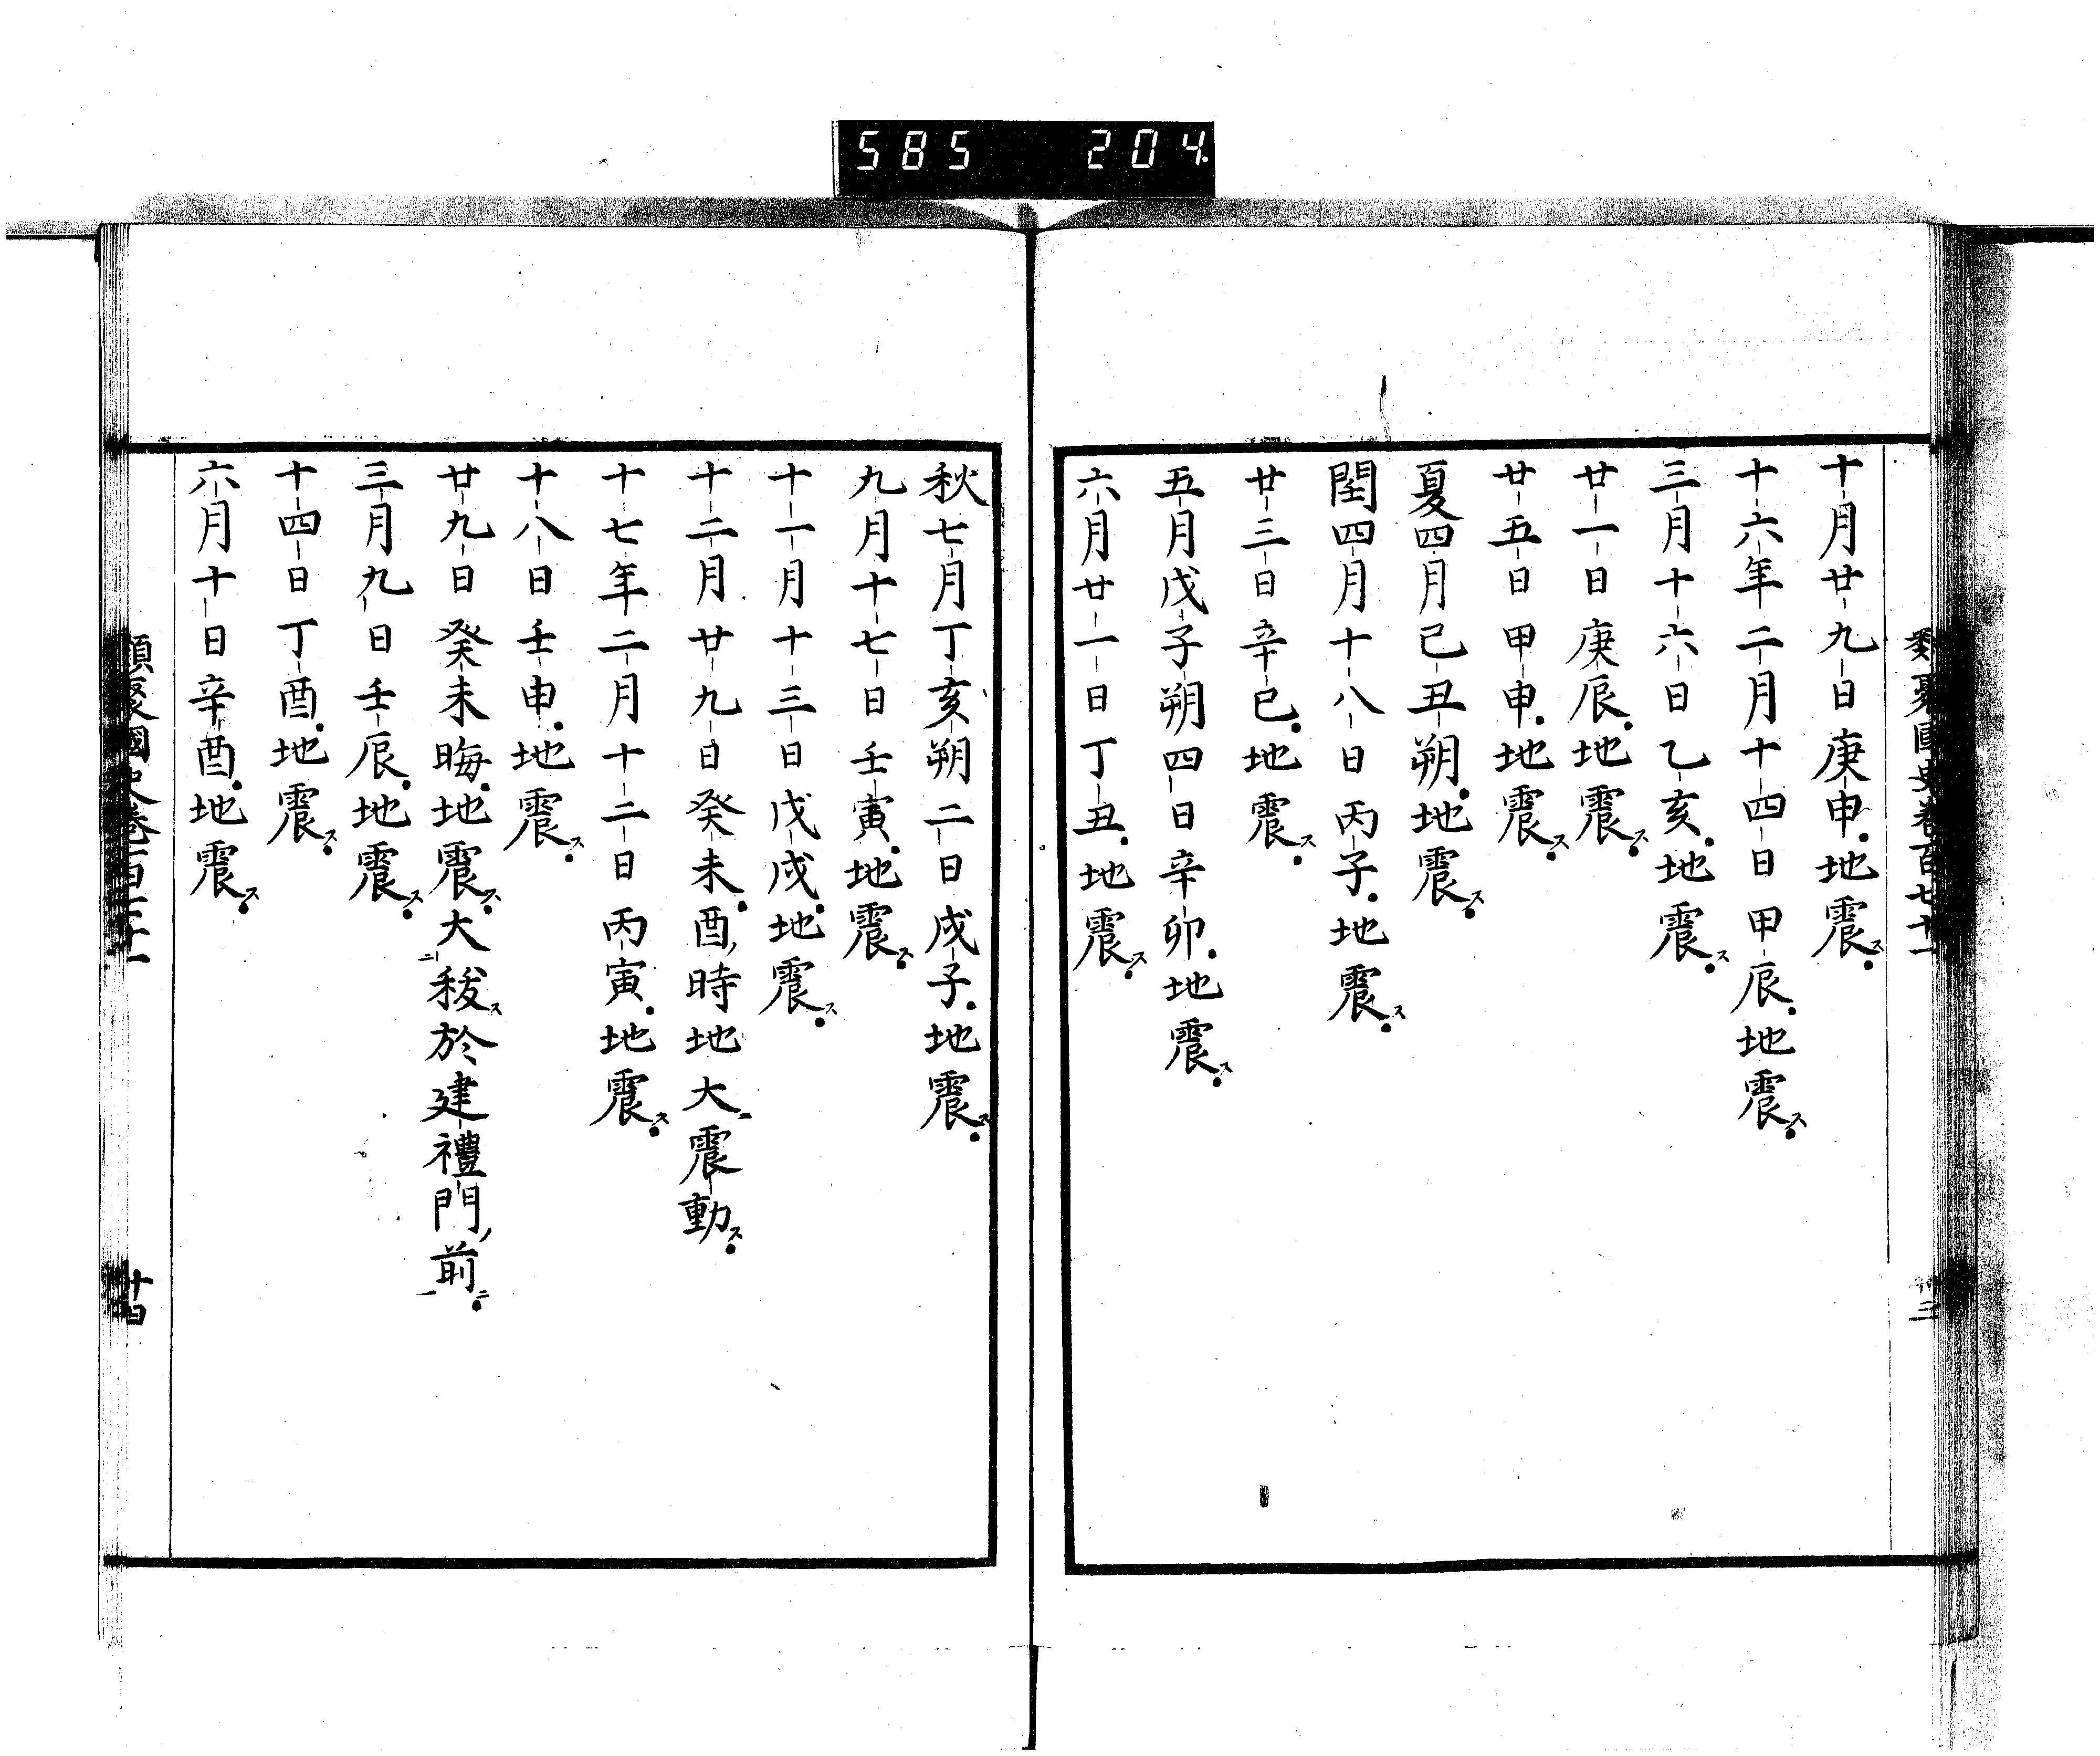 585 204
類聚國史卷百七十一
十月廿九日庚申地震ス
十六年二月十四日甲辰地震ス
三月十六日乙亥地震ス
廿一日庚辰地震ス
廿五日甲申地震ス
夏四月己丑朔地震ス
閏四月十八日丙子地震ス
廿三日辛巳地震ス
五月戊子朔四日辛卯地震ス
六月廿一日丁丑地震ス
秋七月丁亥朔二日戊子地震ス
九月十七日壬寅地震ス
十一月十三日戊戌地震ス
十二月廿九日癸未酉時地大ニ震動ス
十七年二月十二日丙寅地震ス
十八日壬申地震ス
廿九日癸未晦地震ス大秡ス二於建禮門前ニ一
三月九日壬辰地震ス
十四日丁酉地震ス
六月十日辛酉地震ス
類聚國史卷百七十一
十四